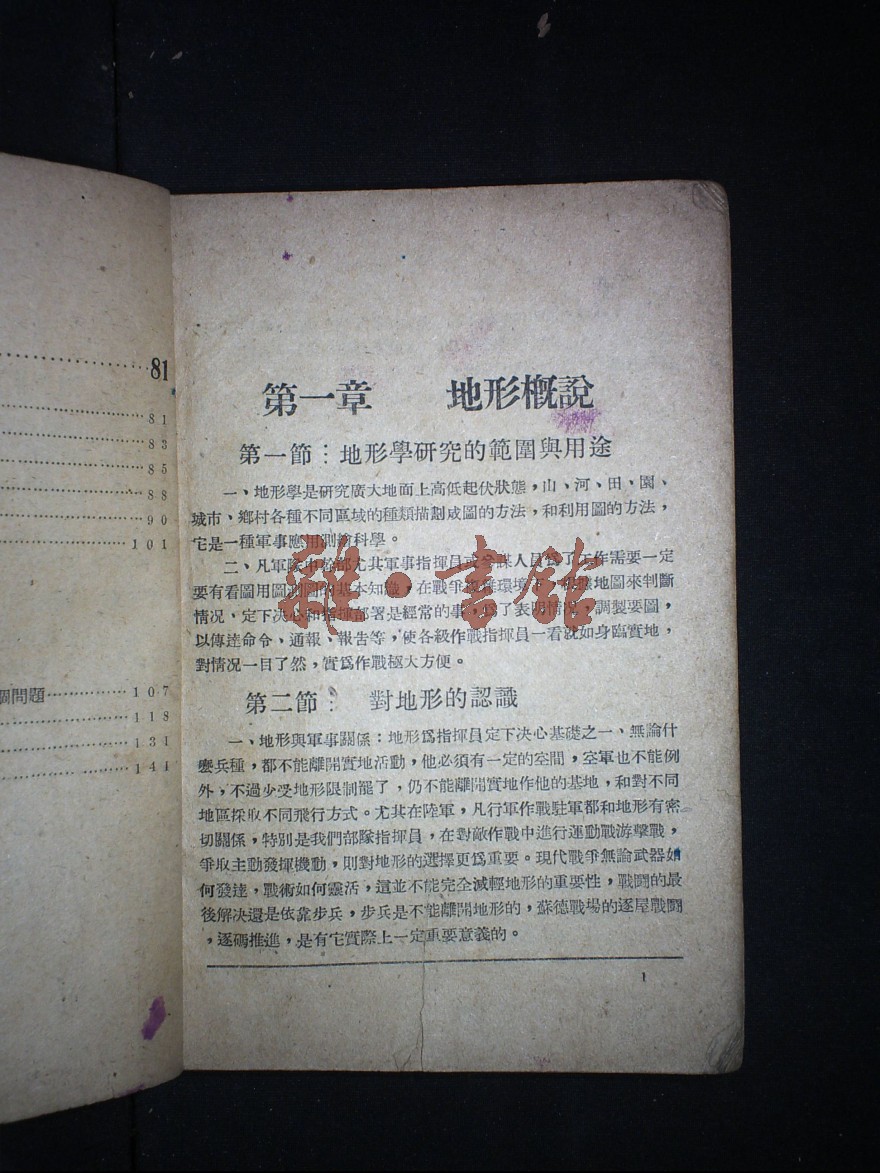 81
81
83
85
88
90
101
個問題 107
118
131
141
第一章 地形概說
第一節：地形學研究的範圍與用途
一、地形學是研究廣大地面上高低起伏狀態，山、河、田、園、
城市、鄉村各種不同區域的種類描劃成圖的方法，和利用圖的方法，
它是一種軍事應用測繪科學。
二、凡軍隊中幹部尤其軍事指揮員或參謀人員爲了工作需要一定
要有看圖用圖測圖的基本知識，在戰爭複雜環境下，根據地圖來判斷
情况，定下决心和指揮部署是經常的事，爲了表明情况，調製要圖，
以傳達命令、通報、報告等，使各級作戰指揮員一看就如身臨實地，
對情况一目了然，實爲作戰極大方便。
第二節： 對地形的認識
一、地形與軍事關係：地形爲指揮員定下决心基礎之一、無論什
麽兵種，都不能離開實地活動，他必須有一定的空間，空軍也不能例
外，不過少受地形限制罷了，仍不能離開實地作他的基地，和對不同
地區採取不同飛行方式。尤其在陸軍，凡行軍作戰駐軍都和地形有密
切關係，特別是我們部隊指揮員，在對敵作戰中進行運動戰游擊戰，
爭取主動發揮機動，則對地形的選擇更爲重要。現代戰爭無論武器如
何發達，戰術如何靈活，這並不能完全減輕地形的重要性，戰鬭的最
後解决還是依靠步兵，步兵是不能離開地形的，蘇德戰場的逐屋戰鬭
，逐碼推進，是有它實際上一定重要意義的。
1
雜·書館